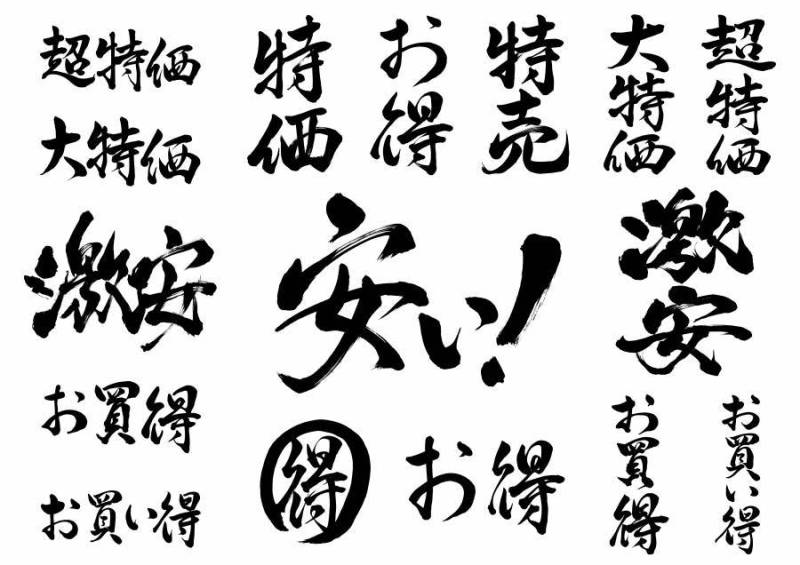 超特価
大特価
特価
お得
特売
大特価
超特価
激安
安い!
激安
お買得
お買い得
得
お得
お買得
お買い得